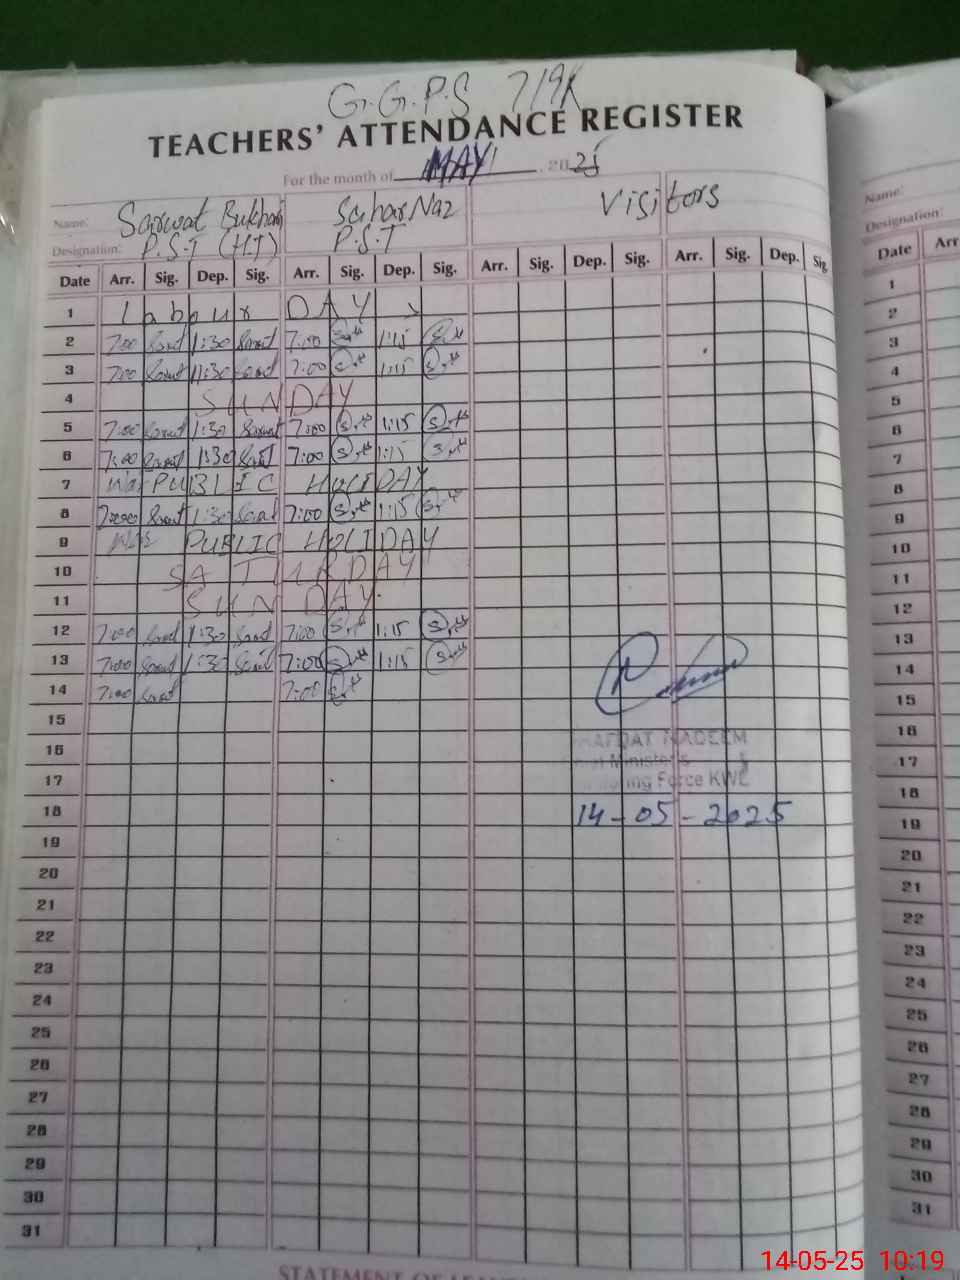 G.G.P.S 719K
TEACHERS' ATTENDANCE REGISTER
For the month of MAY 2025
Name: Sarwat Bukhari Sahar Naz Visitors
Designation: P.S.T (H.T) P.S.T
Date Arr. Sig. Dep. Sig. Arr. Sig. Dep. Sig. Arr. Sig. Dep. Sig. Arr. Sig. Dep. Sig
1 Labour DAY
2 7:00 1:30 7:00 1:15
3 7:00 1:30 7:00 1:15
4 SUNDAY
5 7:00 1:30 7:00 1:15
6 7:00 1:30 7:00 1:15
7 War PUBLIC HOLIDAY
8 7:00 1:30 7:00 1:15
9 PUBLIC HOLIDAY
10 SATURDAY
11 SUNDAY
12 7:00 1:30 7:00 1:15
13 7:00 1:30 7:00 1:15
14 7:00 7:00
15
16
17
18
19
20
21
22
23
24
25
26
27
28
29
30
31
NADEEM
Minister's
Force KWL
14-05-2025
Name:
Designation:
Date Arr
1
2
3
4
5
6
7
8
9
10
11
12
13
14
15
16
17
18
19
20
21
22
23
24
25
26
27
28
29
30
31
STATEMENT OF
14-05-25 10:19